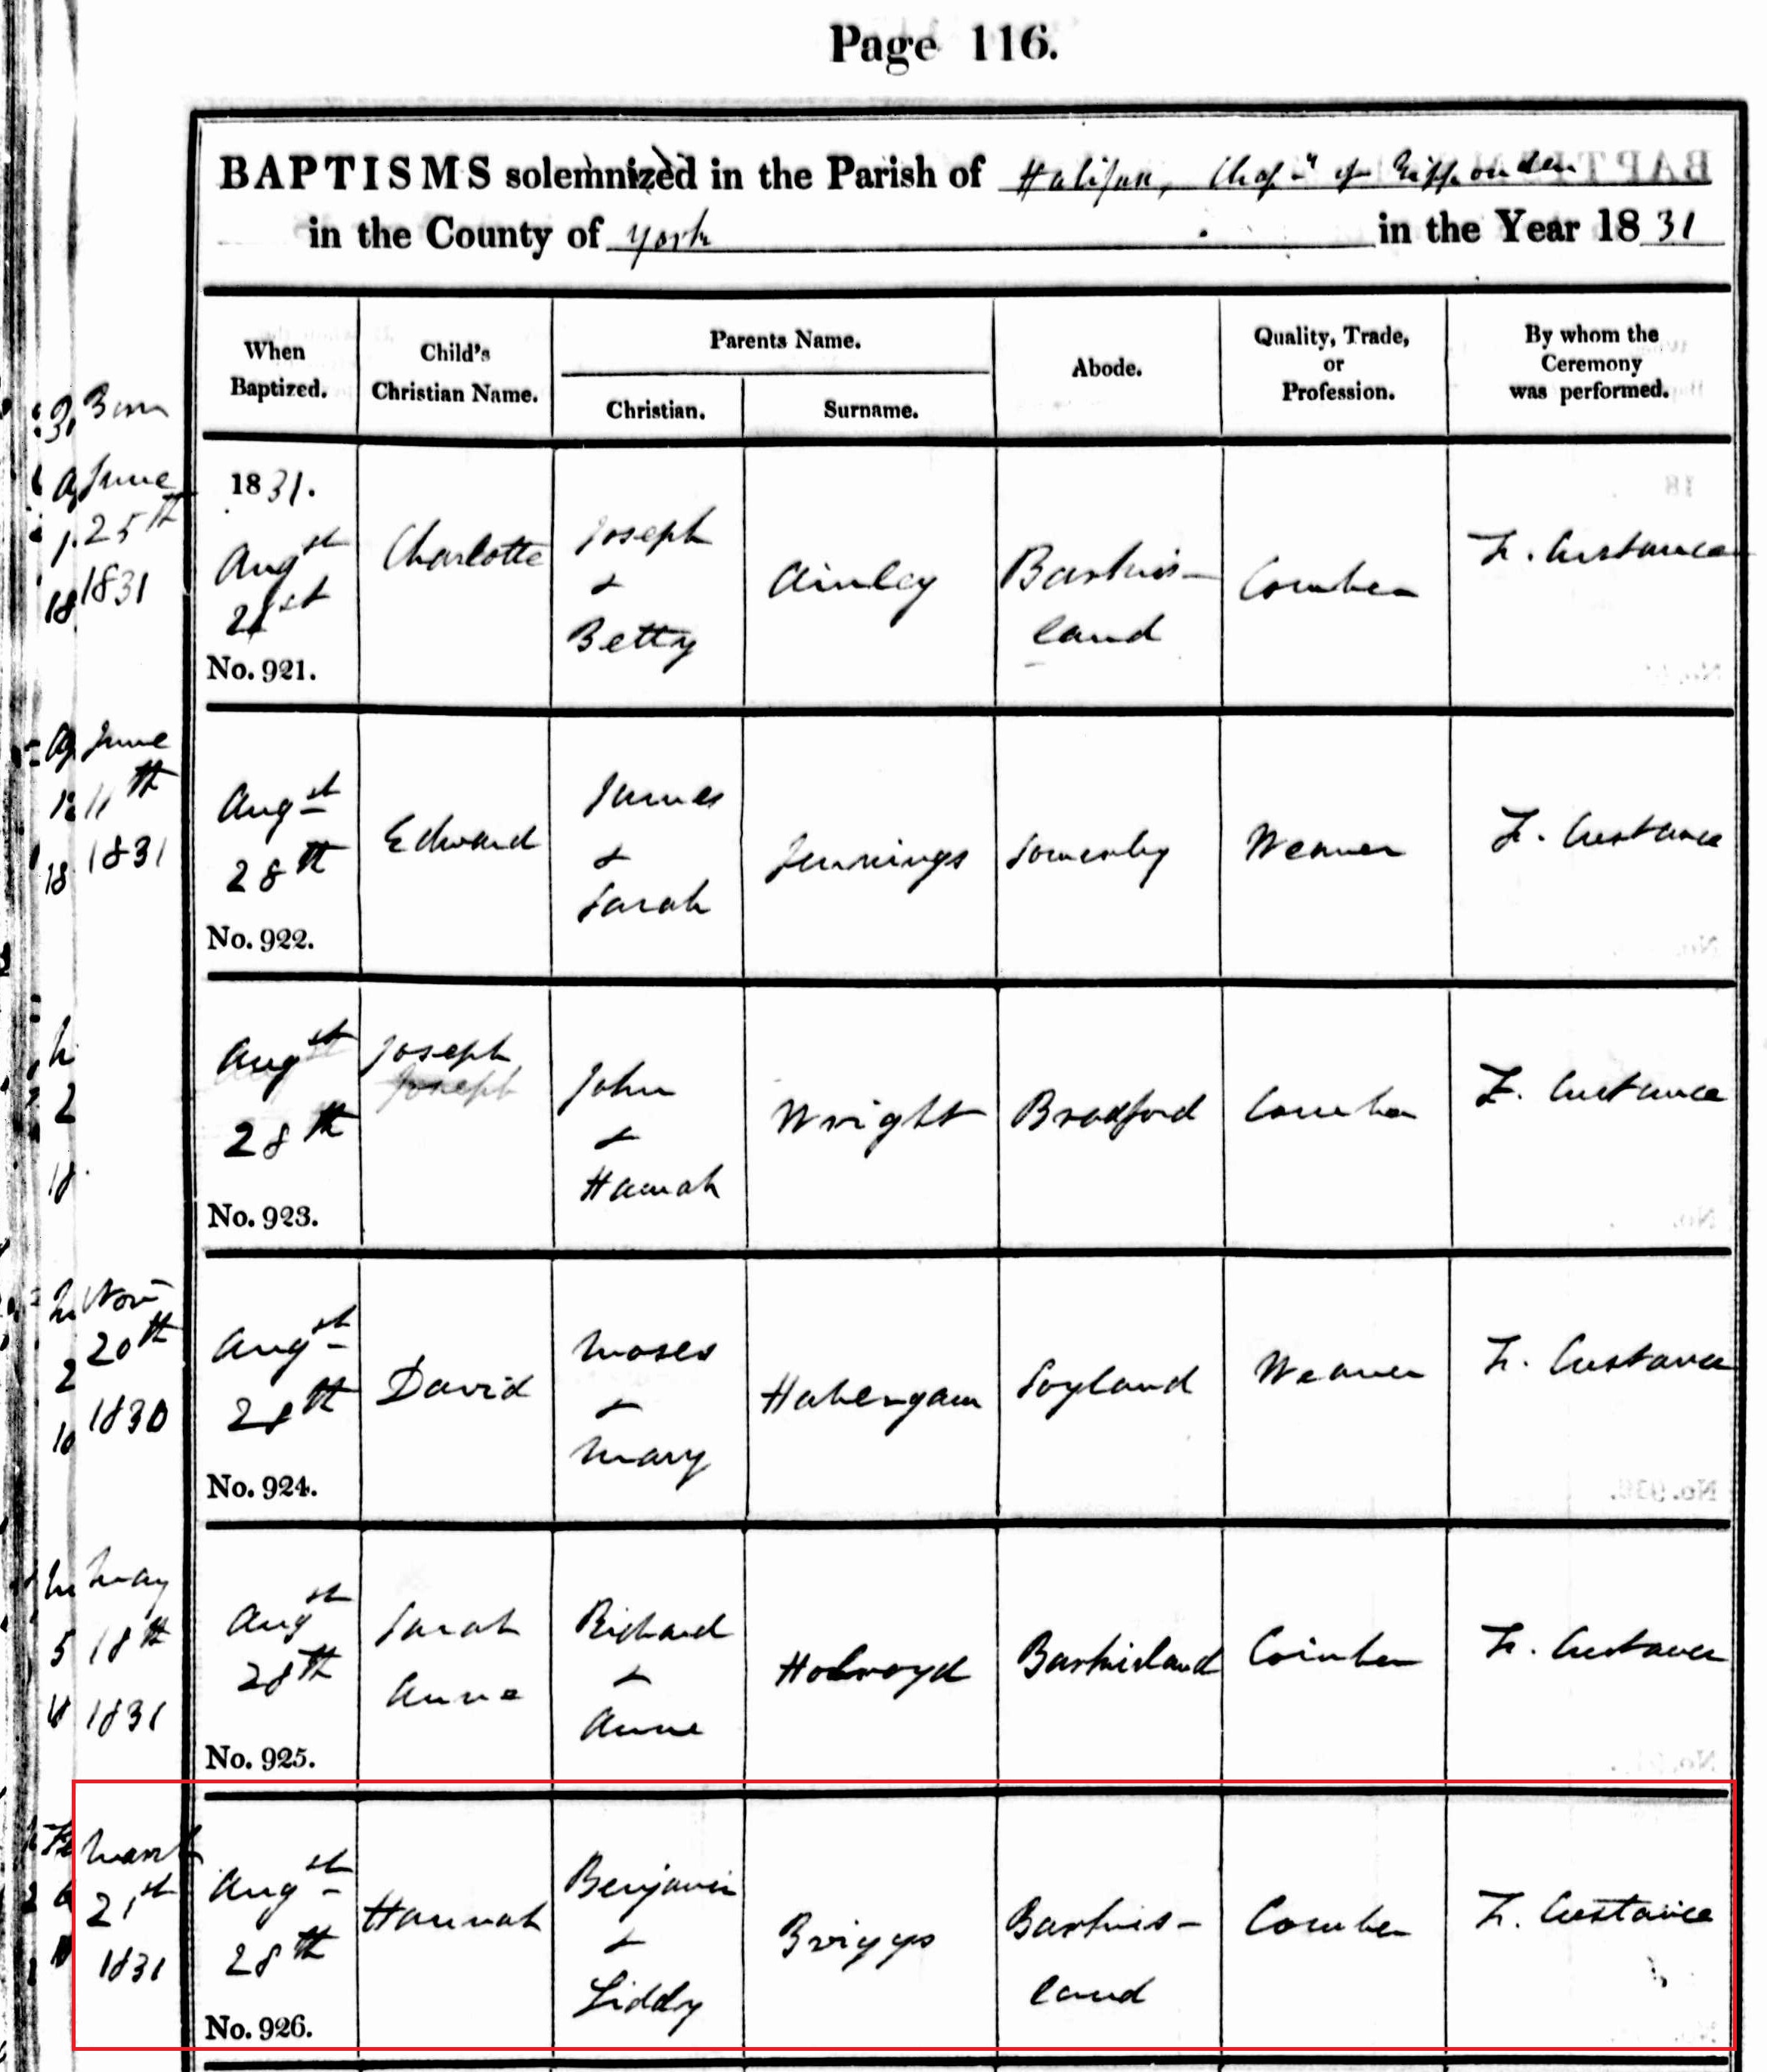 Page 116.
BAPTISMS solemnized in the Parish of Halifax, Chap^y of Ripponden
in the County of York in the Year 1831
When
Baptized.
Child's
Christian Name.
Parents Name.
Christian.
Surname.
Abode.
Quality, Trade,
or
Profession.
By whom the
Ceremony
was performed.
Born
June
25th
1831
1831.
Aug st
21st
No. 921.
Charlotte
Joseph
&
Betty
Ainley
Barkis-
land
Comber
F. Custance
June
11th
1831
Aug st
28th
No. 922.
Edward
James
&
Sarah
Jennings
Sowerby
Weaver
F. Custance
Aug st
28th
No. 923.
Joseph
Joseph
John
&
Hannah
Wright
Bradford
Comber
F. Custance
Nov
20th
1830
Aug st
28th
No. 924.
David
Moses
&
Mary
Habergam
Soyland
Weaver
F. Custance
May
18th
1831
Aug st
28th
No. 925.
Sarah
Anne
Richard
&
Anne
Holroyd
Barkisland
Comber
F. Custance
March
21st
1831
Aug st
28th
No. 926.
Hannah
Benjamin
&
Liddy
Briggs
Barkis-
land
Comber
F. Custance